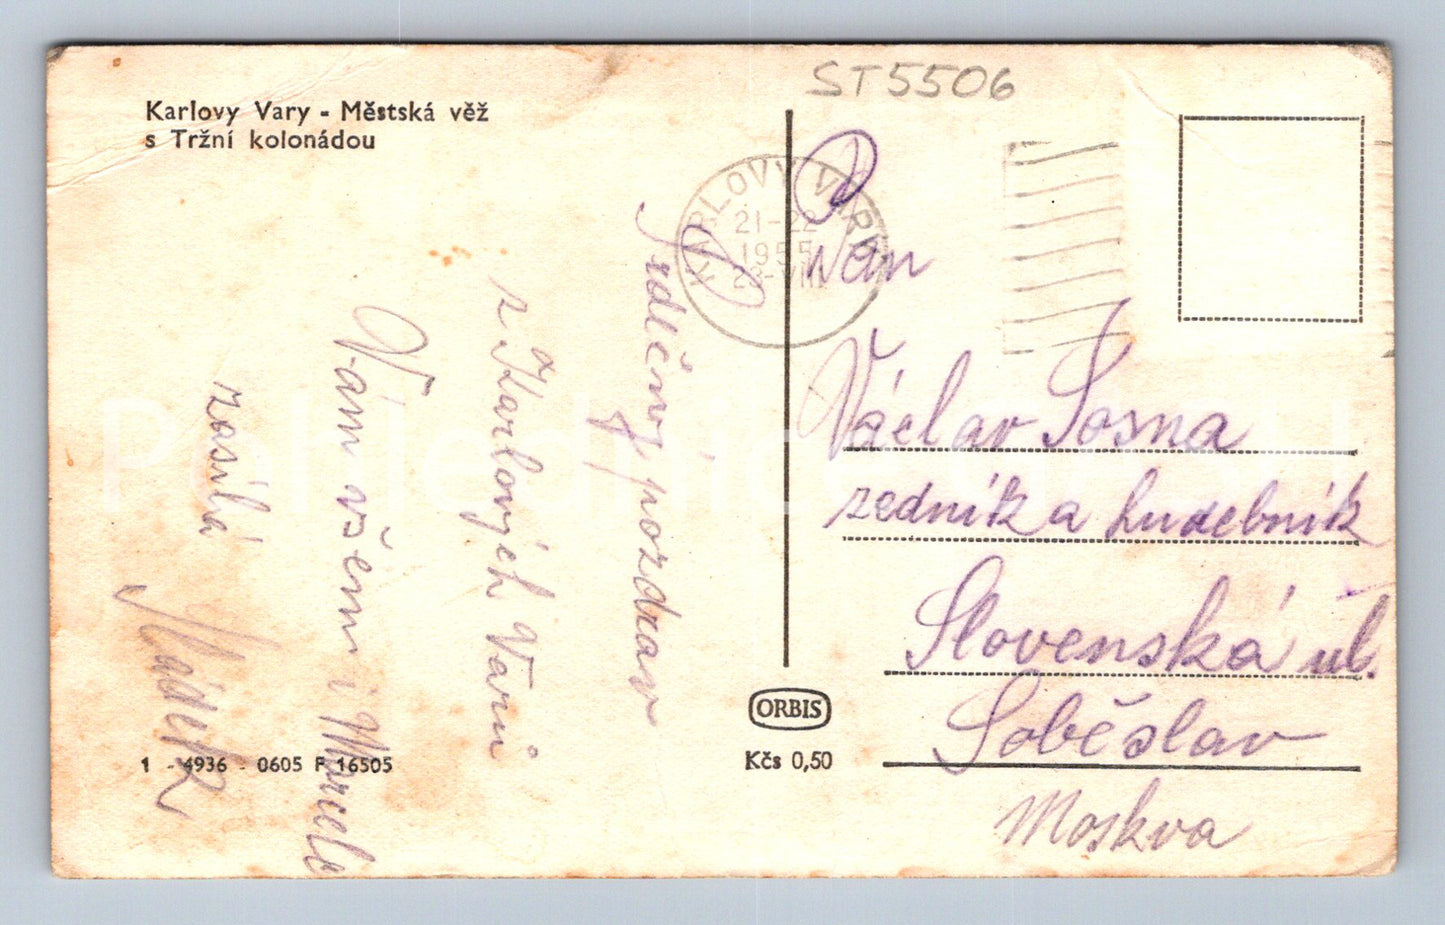 ST5506
Karlovy Vary - Městská věž
s Tržní kolonádou
KARLOVY VARY
21-22
1955
23-VIII
Pan
Václav Sosna
zedník a hudebník
Slovenská ul.
Soběslav
Moskva
Srdečný pozdrav
z Karlových Varů
Vám všem i
zasílá
ORBIS
Kčs 0,50
1 - 4936 - 0605 F 16505